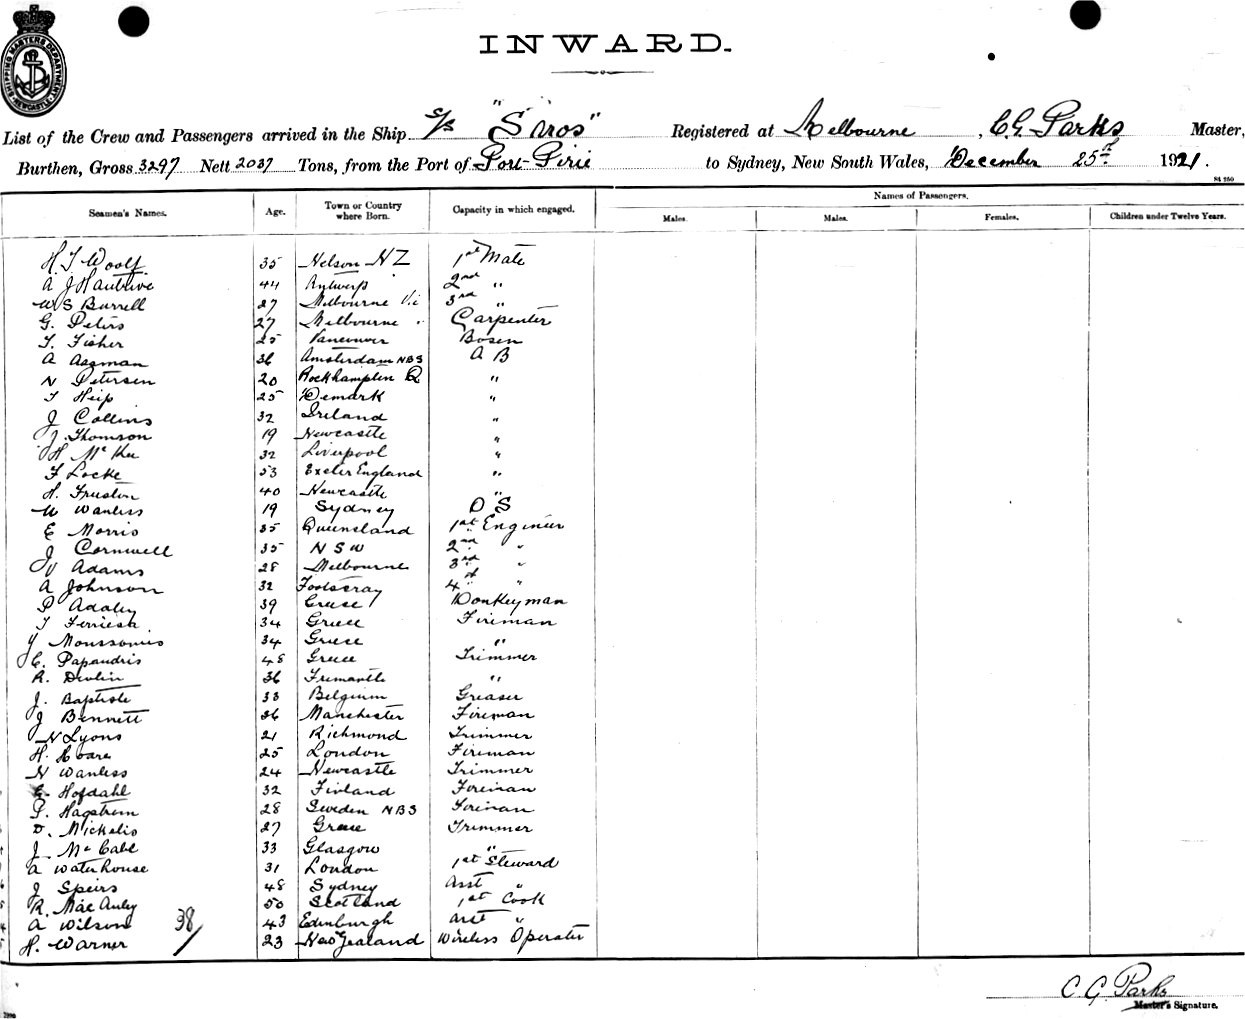 SHIPPING MASTERS DEPARTMENT NEWCASTLE
INWARD.
List of the Crew and Passengers arrived in the Ship S/S "Saros" Registered at Melbourne, C G Parks Master,
Burthen, Gross 3297 Nett 2037 Tons, from the Port of Port Pirie to Sydney, New South Wales, December 25th 1921.
Seamen's Names. Age. Town or Country where Born. Capacity in which engaged. Names of Passengers.
Males. Males. Females. Children under Twelve Years.
H. J Woolf 35 Nelson NZ 1st Mate
A J Hautrive 44 Antwerp 2nd "
W S Burrell 27 Melbourne Vic 3rd "
G. Peters 27 Melbourne " Carpenter
T. Fisher 25 Vancouver Bosen
A Assman 36 Amsterdam NBS A B
N Petersen 20 Rockhampton Q "
T Heip 25 Demark "
J Collins 32 Ireland "
J. Thomson 19 Newcastle "
H McKee 32 Liverpool "
F Locke 53 Exeter England "
H. Fruston 40 Newcastle "
W Wanless 19 Sydney O S
E Morris 35 Queensland 1st Engineer
J Cornwell 35 N S W 2nd "
W Adams 28 Melbourne 3rd "
A Johnson 32 Footscray 4th "
P Adaley 39 Greece Donkeyman
T 34 Greece Fireman
Y Moussouris 34 Greece "
C. Papandris 48 Greece Trimmer
R. Devlin 36 Fremantle "
J. Baptiste 33 Belgium Greaser
J Bennett 36 Manchester Fireman
N Lyons 21 Richmond Trimmer
H. Hoare 25 London Fireman
N Wanless 24 Newcastle Trimmer
E. Hofdahl 32 Finland Foreinan
P. Hagstrem 28 Sweden NBS Foreinan
D. Mickelis 27 Greece Trimmer
J McCabe 33 Glasgow "
A Waterhouse 31 London 1st Steward
J Speirs 48 Sydney Asst "
R. MacAuley 50 Scotland 1st Cook
A Wilson 38/ 43 Edinburgh Asst "
H. Warner 23 New Zealand Wireless Operater
C. G. Parks
Master's Signature.